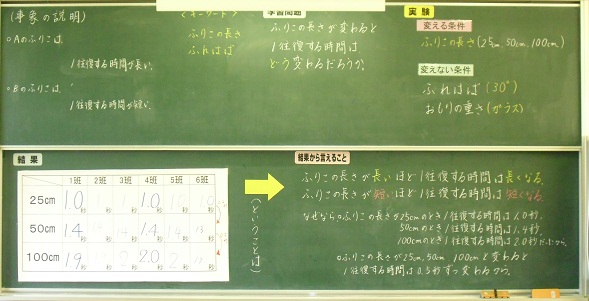 (事象の説明)
○Aのふりこは、
1往復する時間が長い。
○Bのふりこは、
1往復する時間が短い。
<キーワード>
ふりこの長さ
ふれはば
学習問題
ふりこの長さが変わると
1往復する時間は
どう変わるだろうか。
実験
変える条件
ふりこの長さ(25cm, 50cm, 100cm)
変えない条件
ふれはば(30°)
おもりの重さ(ガラス)
結果
1班 2班 3班 4班 5班 6班
25cm 1.0秒 秒 秒 1.0秒 秒 秒
50cm 1.4秒 秒 秒 1.4秒 秒 秒
100cm 1.9秒 秒 秒 2.0秒 秒 秒
(ということは)
結果から言えること
ふりこの長さが長いほど1往復する時間は長くなる。
ふりこの長さが短いほど1往復する時間は短くなる。
なぜなら○ふりこの長さが25cmのとき1往復する時間は1.0秒、
50cmのとき1往復する時間は1.4秒、
100cmのとき1往復する時間は2.0秒だったから。
○ふりこの長さが25cm、50cm、100cmと変わると
1往復する時間は0.5秒ずつ変わるから。